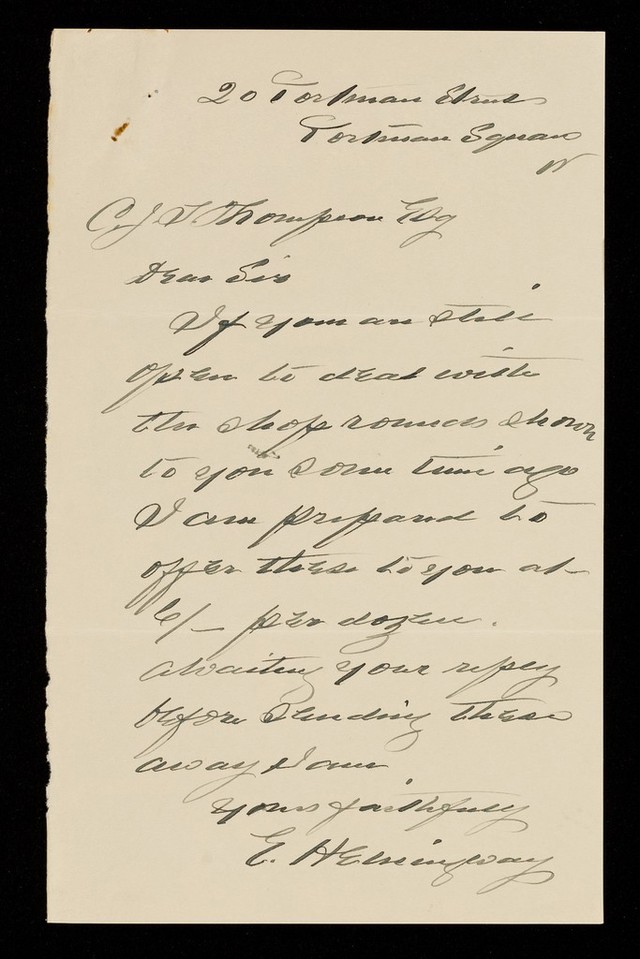 20 Portman Street
Portman Square
W
C. J. S. Thompson Esq
Dear Sir
If you are still
open to deal with
the shop rounds shown
to you some time ago
I am prepared to
offer these to you at
6/- per dozen.
awaiting your reply
before sending these
away I am
yours faithfully
E. Hemingway